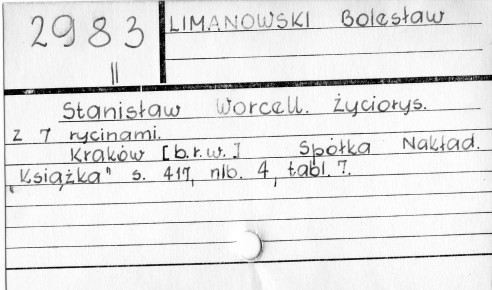 2983
II
LIMANOWSKI Bolesław
Stanisław Worcell. Życiorys.
z 7 rycinami.
Kraków [b.r.w.] Spółka Nakład.
"Książka" s. 417, nlb. 4, tabl. 7.